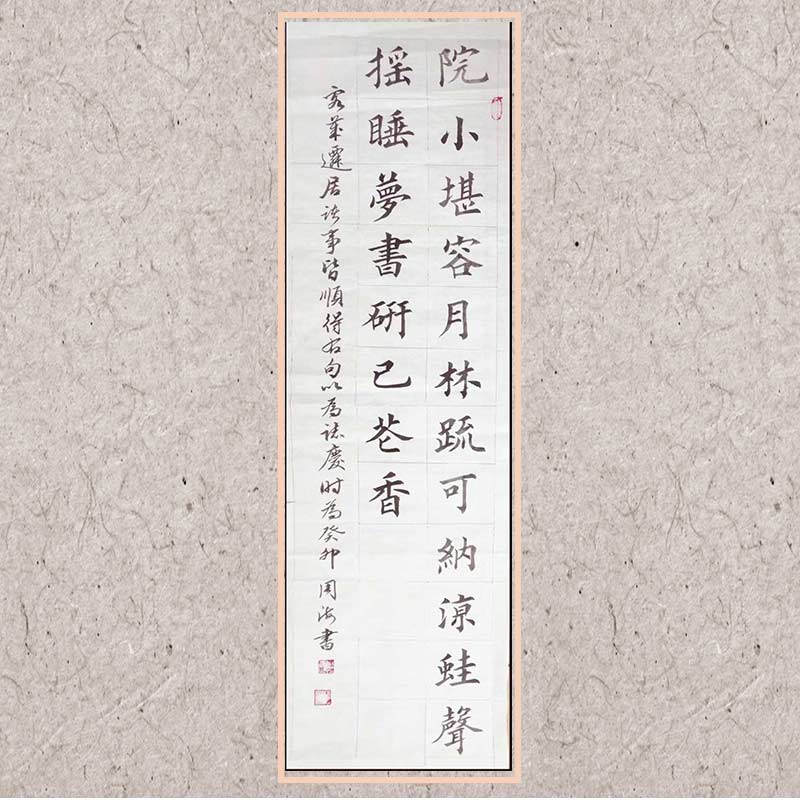 院小堪容月林疏可納涼蛙聲
揺睡夢書研已芯香
遷居諸事皆順得右句以為誌慶时為癸卯周海書